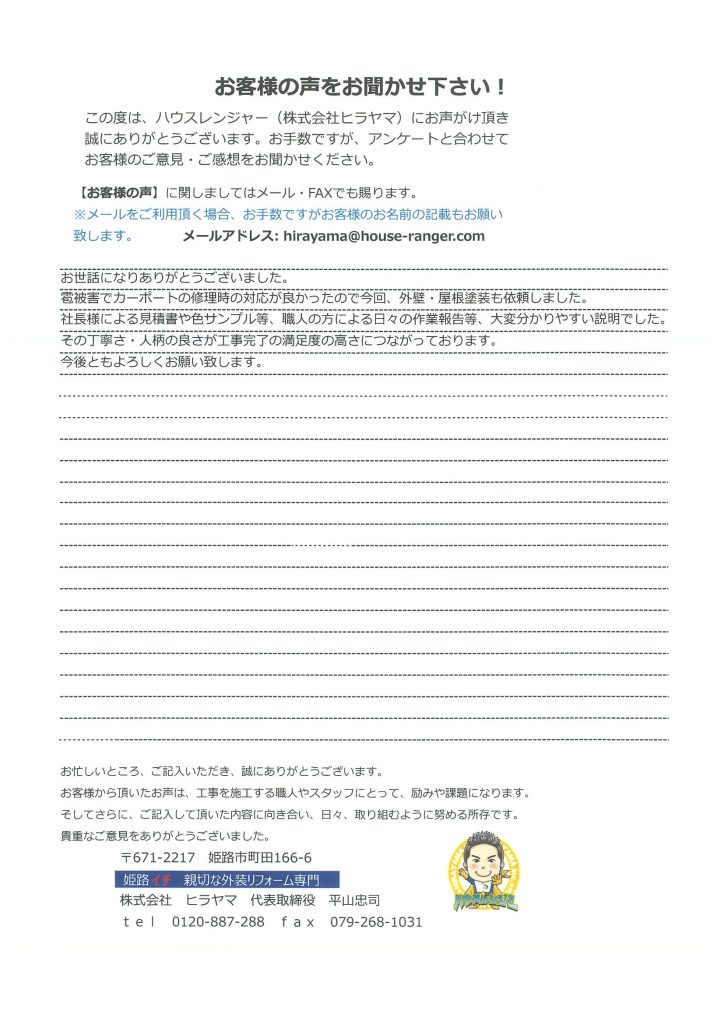 お客様の声をお聞かせ下さい！
この度は、ハウスレンジャー（株式会社ヒラヤマ）にお声がけ頂き
誠にありがとうございます。お手数ですが、アンケートと合わせて
お客様のご意見・ご感想をお聞かせください。
【お客様の声】に関しましてはメール・FAXでも賜ります。
※メールをご利用頂く場合、お手数ですがお客様のお名前の記載もお願い
致します。 メールアドレス: hirayama@house-ranger.com
お世話になりありがとうございました。
雹被害でカーポートの修理時の対応が良かったので今回、外壁・屋根塗装も依頼しました。
社長様による見積書や色サンプル等、職人の方による日々の作業報告等、大変分かりやすい説明でした。
その丁寧さ・人柄の良さが工事完了の満足度の高さにつながっております。
今後ともよろしくお願い致します。
お忙しいところ、ご記入いただき、誠にありがとうございます。
お客様から頂いたお声は、工事を施工する職人やスタッフにとって、励みや課題になります。
そしてさらに、ご記入して頂いた内容に向き合い、日々、取り組むように努める所存です。
貴重なご意見をありがとうございました。
〒671-2217 姫路市町田166-6
姫路イチ 親切な外装リフォーム専門
株式会社 ヒラヤマ 代表取締役 平山忠司
ｔｅｌ 0120-887-288 ｆａｘ 079-268-1031
ハウスレンジャー